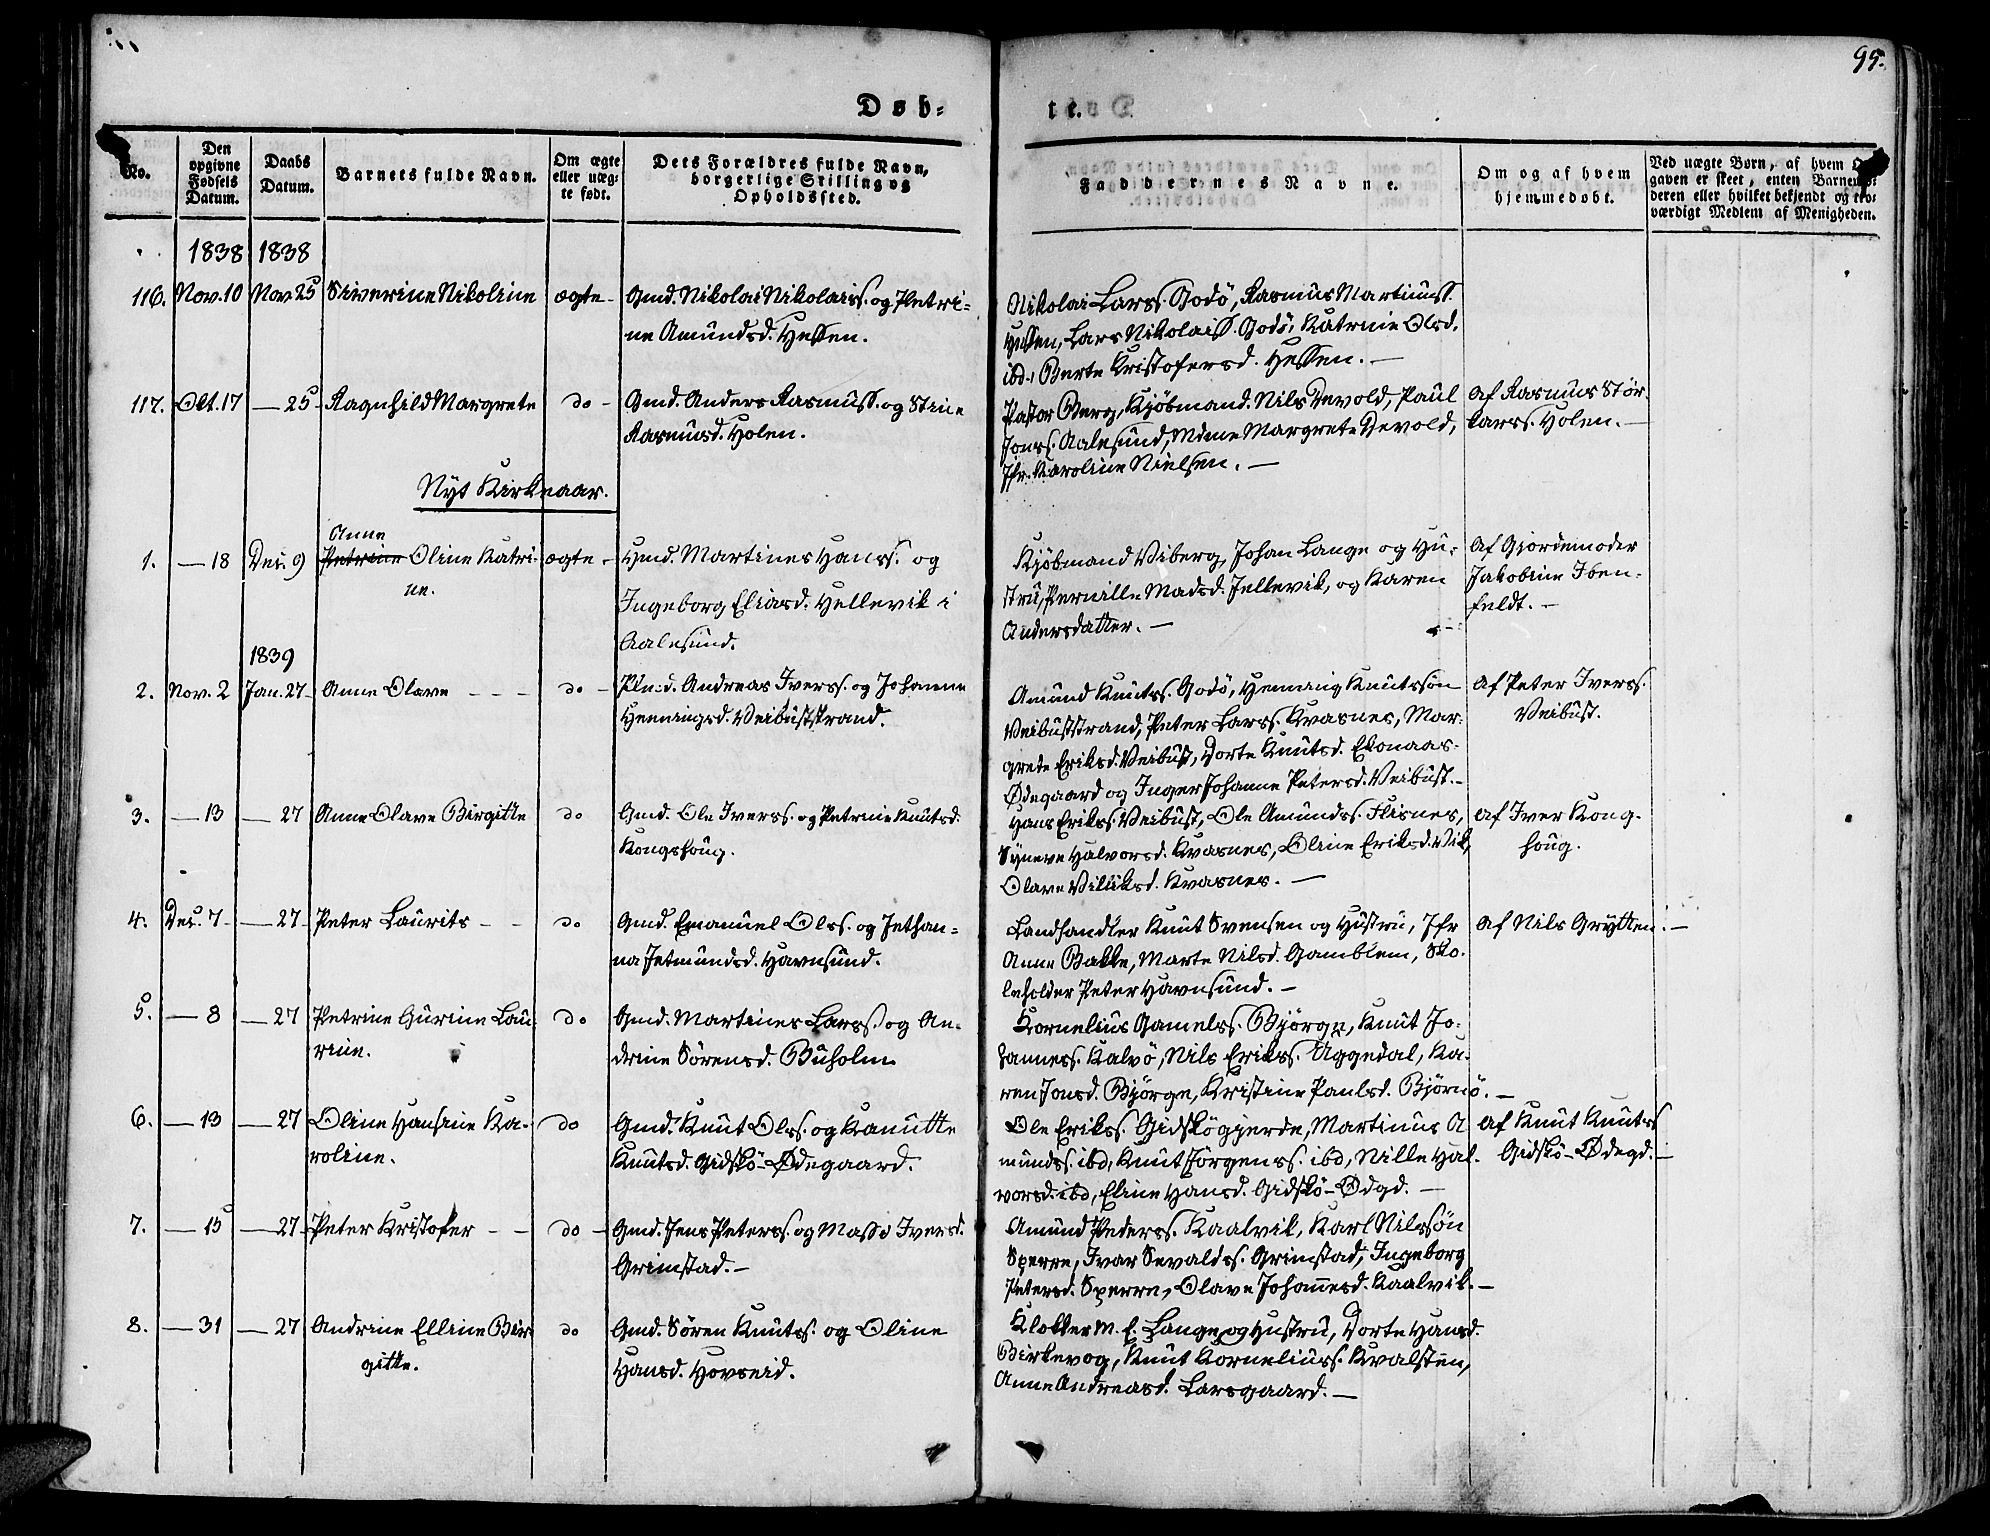 95.
Døb-
te.
No.
Den opgivne Fødsels Datum.
Daabs Datum.
Barnets fulde Navn.
Om ægte eller uægte født.
Dets Forældres fulde Navn, borgerlige Stilling og Opholdssted.
Faddernes Navne.
Om og af hvem hjemmedøbt.
Ved uægte Børn, af hvem
gaven er skeet, enten Barnemo-
deren eller hvilket bekjendt og tro-
værdigt Medlem af Menigheden.
1838 1838
116. Nov. 10 Nov. 25 Siverine Nikoline ægte- Gmd. Nikolai Nikolaiss. og Petri-
ne Amundsd. Hessen.
Nikolai Larss. Godö, Rasmus Martinuss.
Hessen, Lars Nikolaiss. Godö, Katrine Olsd.
ibd., Berte Kristofersd. Hessen. —
117. Okt. 17 — 25 Ragnhild Margrete do - Gmd. Anders Rasmuss. og Stine
Rasmusd. Holen.
Pastor Berg, Kjöbmand. Nils Devold, Paul
Jonss. Aalesund, Mdme Margrete Devold,
Jfr. Karoline Nielsen. —
af Rasmus Stör
Larss. Holen. —
Nyt Kirkeaar.
1. — 18 Dec. 9 Petrine Anne Oline Katri-
ne. ægte - Hmd. Martines Hanss. og
Ingeborg Eliasd. Hellevik i
Aalesund.
Kjöbmand Viberg, Johan Lange og Hu-
stru, Pernille Madsd. Jellevik, og Karen
Andersdatter. —
Af Gjordemoder
Jakobine Iben-
feldt. —
1839
2. Nov. 2 Jan. 27 Anne Olave - - - do - Andreas Iverss. og Johanne
Henningsd. Veibuststrand.
Amund Knutss. Godö, Henning Knutssön
Veibuststrand, Peter Larss. Kvasnes, Mar-
grete Eriksd. Veibust, Dorte Knutsd. Ekonaas-
Ødegaard og Inger Johanne Petersd. Veibust. -
af Peter Iverss.
Veibust.
3. — 13 — 27 Anne Olave Birgitte do Gmd. Ole Iverss. og Petrine Knutsd.
Kongshoug.
Hans Erikss. Veibust, Ole Amundss. Flisnes,
Synneve Halvorsd. Kvasnes, Oline Eriksd. Vik,
Olave Viliksd. Kvasnes. —
af Iver Kong-
houg.
4. Dec. 7 — 27 Peter Laurits - - do Gmd. Emanuel Olss. og Jethan-
na Jetmundsd. Havnsund.
Landhandler Knut Svensen og Hustru, Jfr
Anne Bakke, Marte Nilsd. Gamblem, Sko-
leholder Peter Havnsund. —
af Nils Grytten. —
5. — 8 — 27 Petrine Gurine Lau-
rine. do Gmd. Martines Larss. og An-
drine Sörensd. Buholm
Kornelius Gamelss. Björge, Knut Jo-
hanness. Kalvö, Nils Erikss. Uggedal, Ka-
ren Jonsd. Björge, Kristine Paulsd. Björnö. —
6. — 13 — 27 Oline Hansine Ka-
roline. do Gmd. Knut Olss. og Kanutte
Knutsd. Gidskö-Ødegaard.
Ole Erikss. Gidskögjerde, Martinus A
mundss. ibd, Knut Jörgenss. ibd, Nille Hal-
vorsd. ibd, Eline Hansd. Gidskö-Ødgd. —
af Knut Knutss
Gidskö-Ødegd. —
7. — 15 — 27 Peter Kristofer - - do - Gmd. Jens Peterss. og Massi Iversd.
Grimstad. —
Amund Pederss. Kaalvik, Karl Nilssön
Sperre, Ivar Sevaldss. Grimstad, Ingeborg
Petersd. Sperre, Olave Johannesd. Kaalvik. —
8. — 31 — 27 Andrine Elline Bir-
gitte. do Gmd. Sören Knutss. og Oline
Hansd. Hovseid.
Klokker M. E. Lange og Hustru, Dorte Hansd.
Birkevog, Knut Korneliuss. Kvalsten,
Anne Andreasd. Larsgaard. —